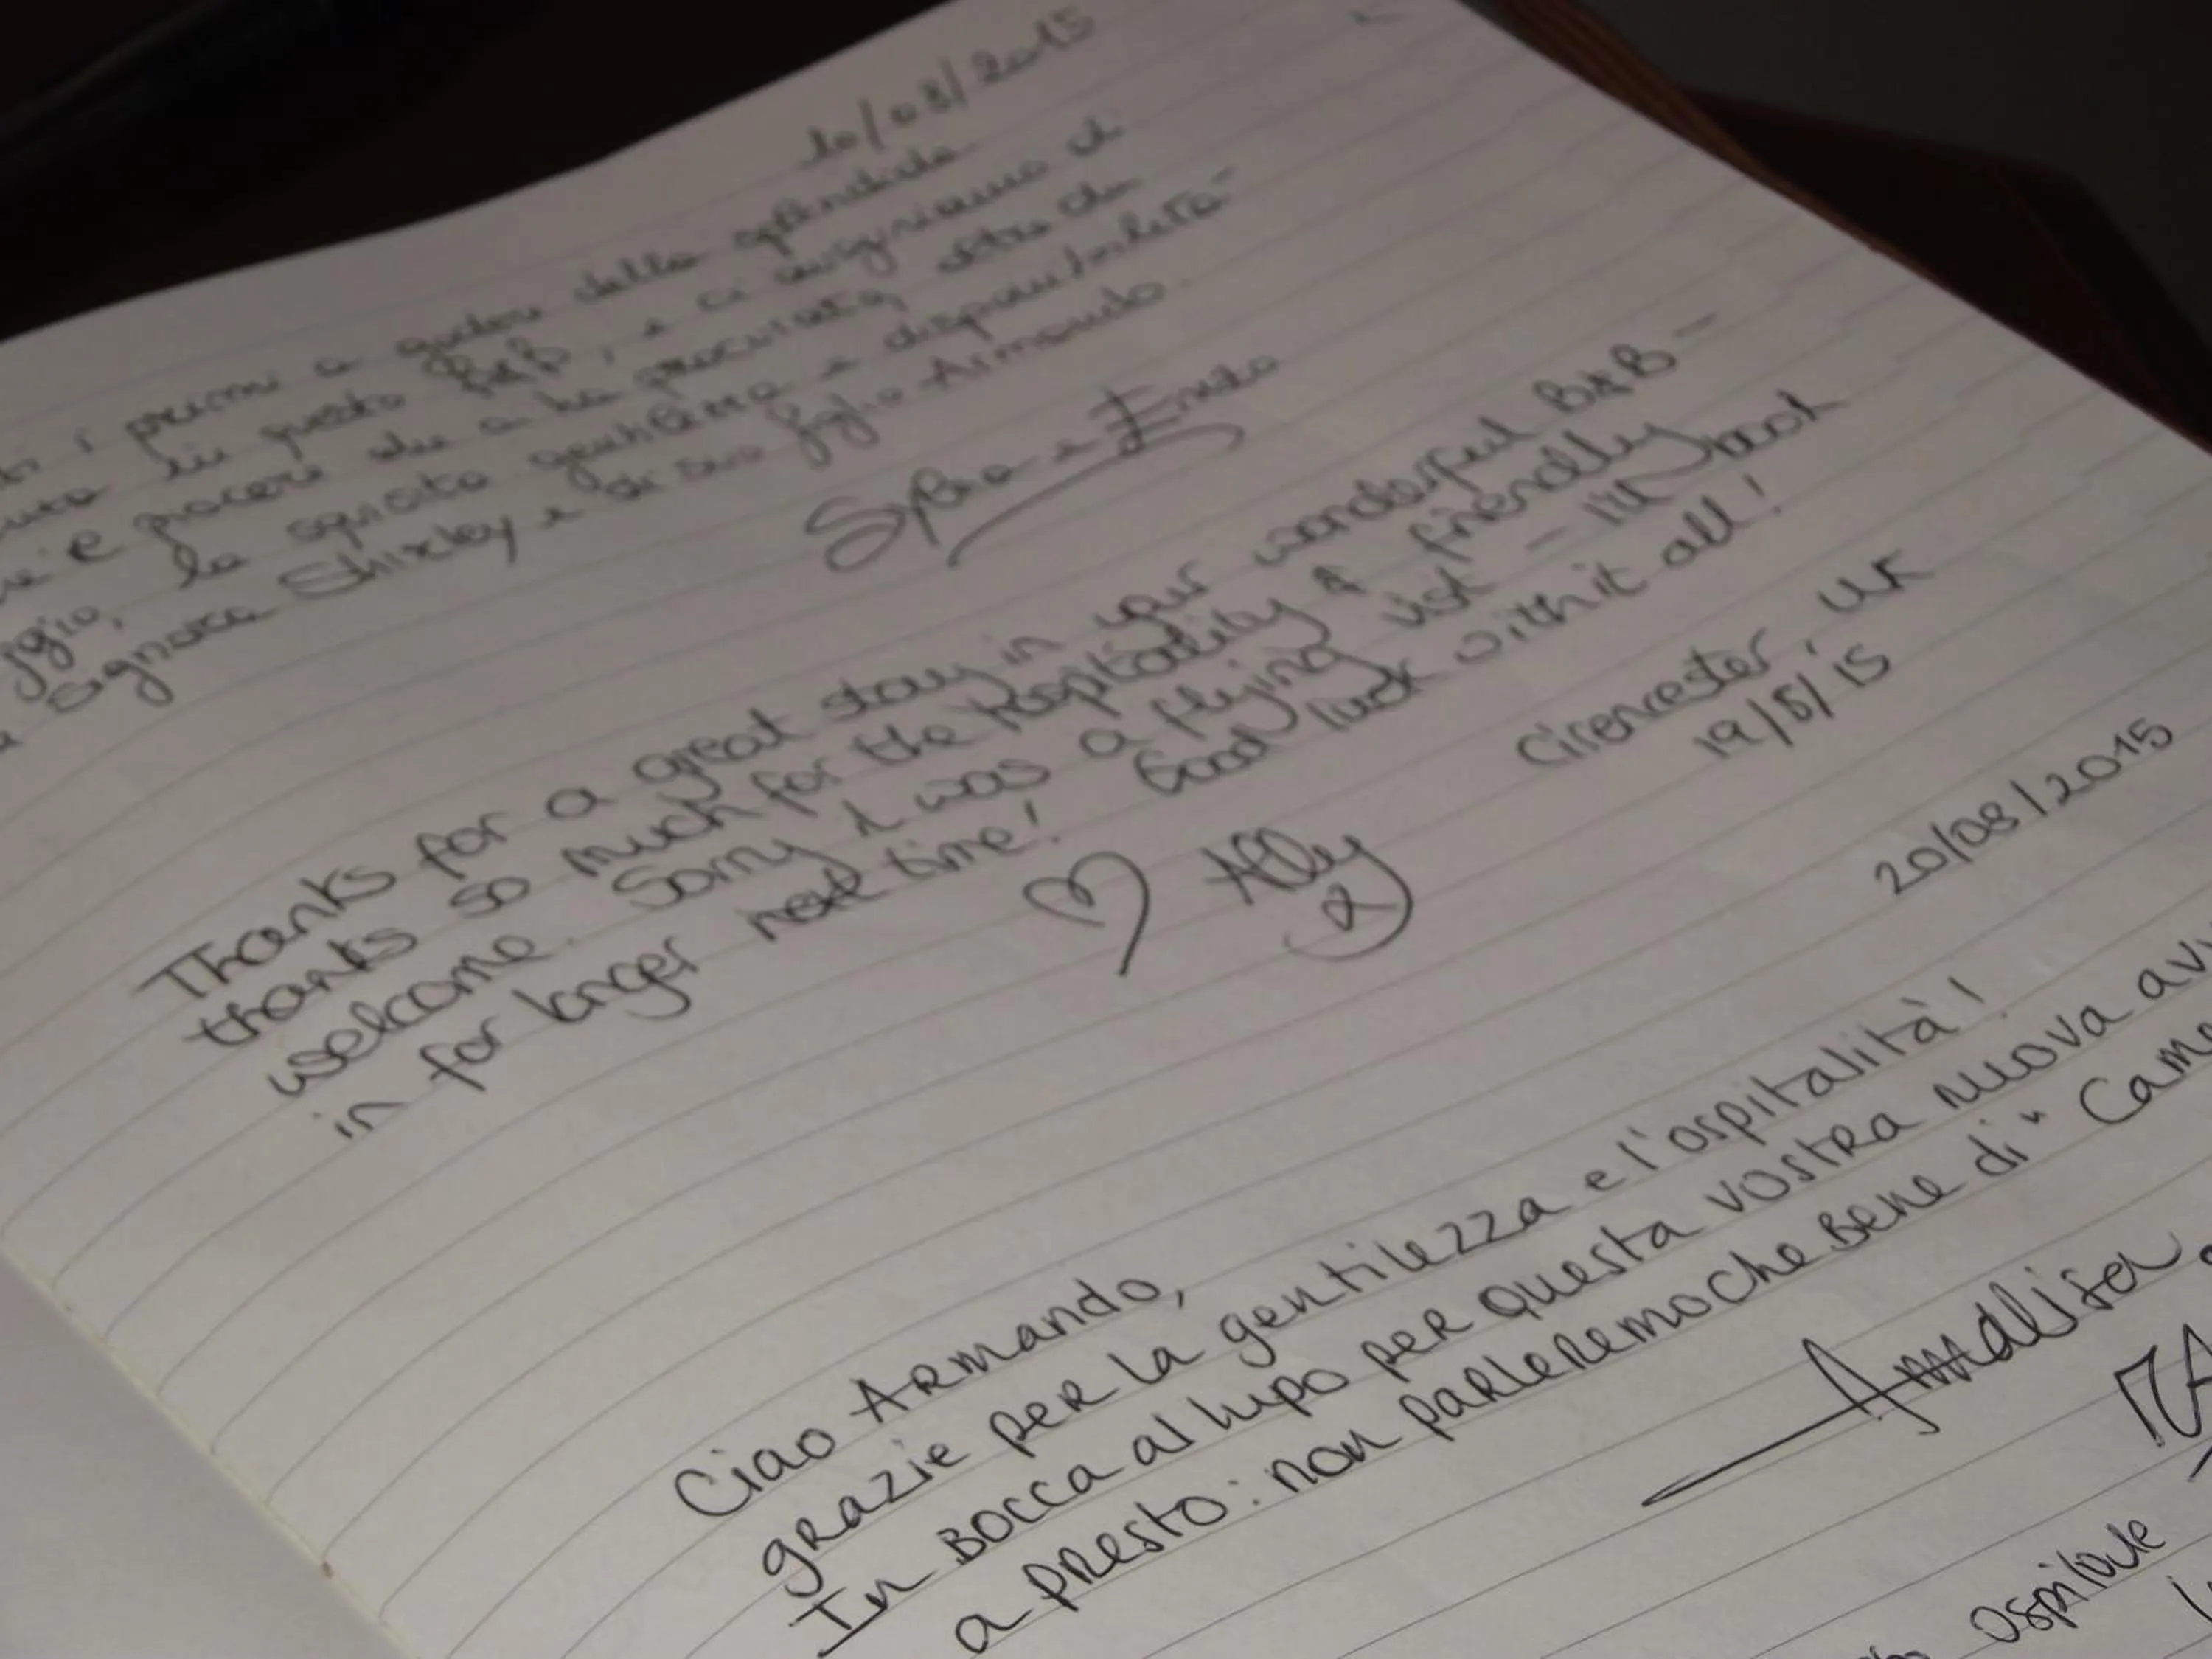 10/08/2015
i primi a godere della splendida
in questo B&B, e ci auguriamo di
e piacere che ci ha procurato, oltre che
la squisita gentilezza e disponibilità
Signora Shirley e di suo figlio Armando.
Sylvia e Enzo
Thanks for a great stay in your wonderful B&B –
thanks so much for the hospitality & friendly
welcome. Sorry I was a flying visit – I'll book
in for longer next time! Good luck with it all!
Cirencester, UK
Ally
19/8/15
20/08/2015
Ciao Armando,
grazie per la gentilezza e l'ospitalità!
In bocca al lupo per questa vostra nuova
a presto: non parleremo che bene di "
Annalisa
Ospitale